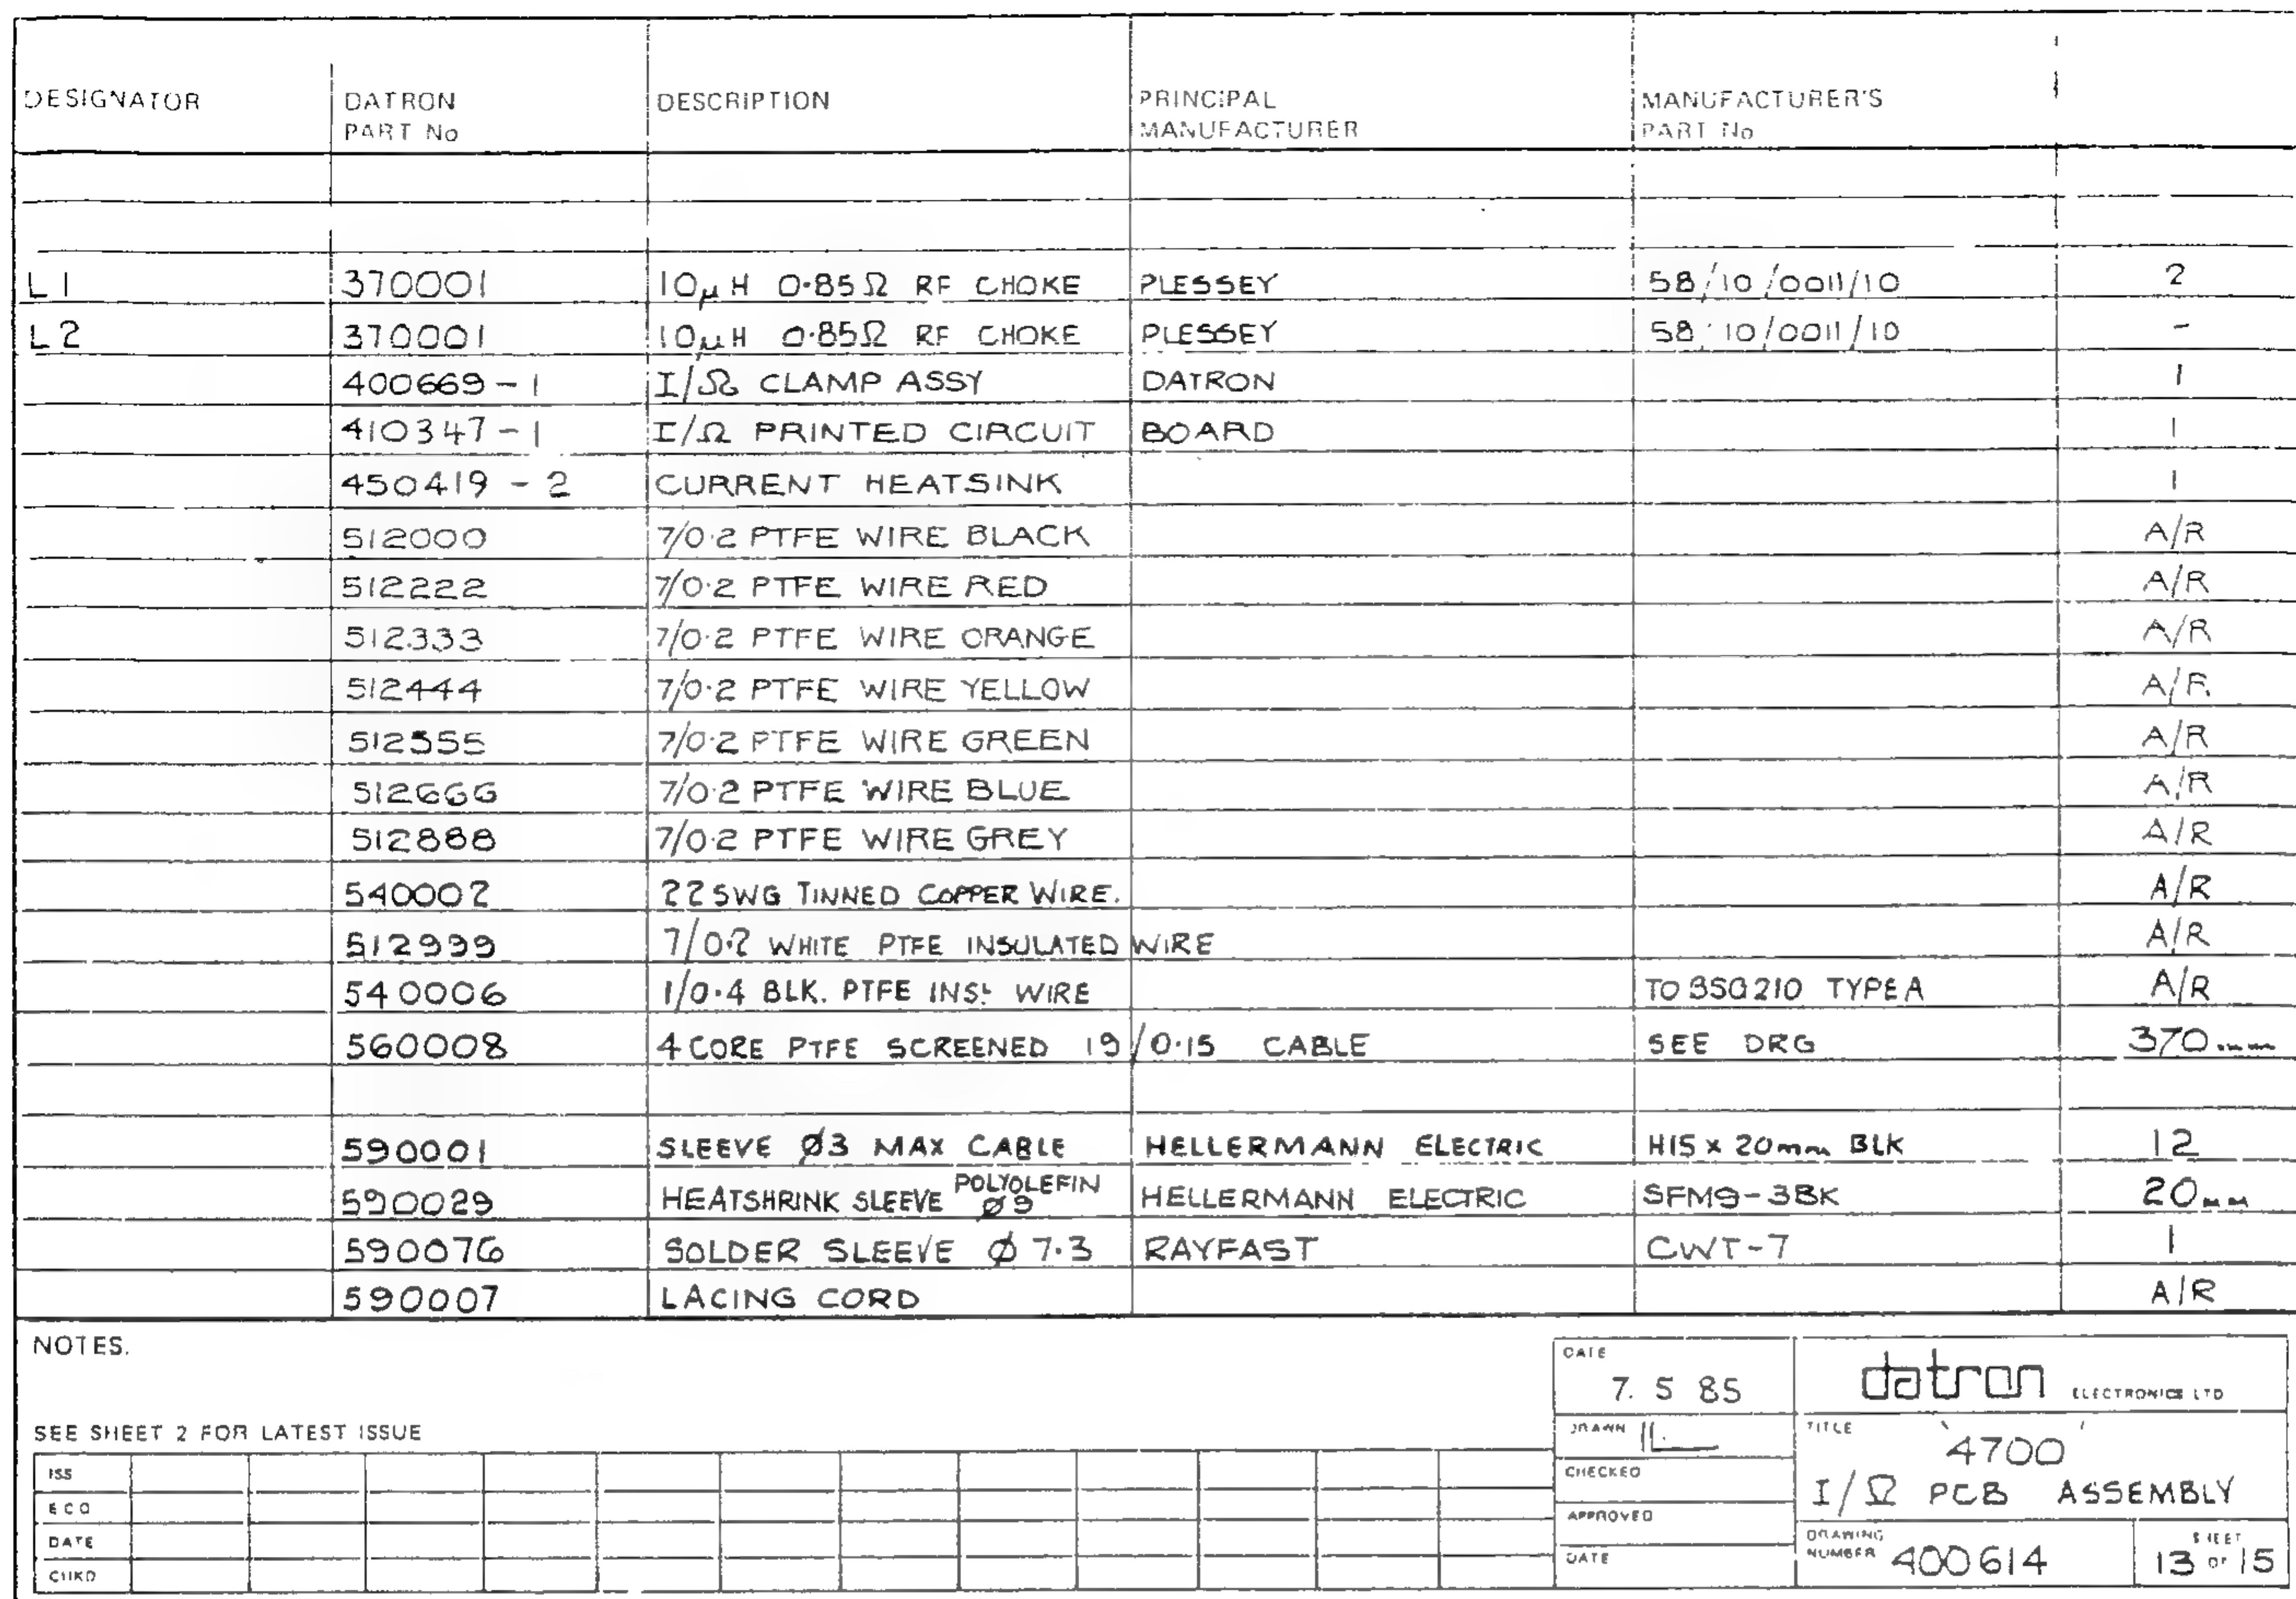 DESIGNATOR DATRON PART No DESCRIPTION PRINCIPAL MANUFACTURER MANUFACTURER'S PART No
L1 370001 10μH 0·85Ω RF CHOKE PLESSEY 58/10/0011/10 2
L2 370001 10μH 0·85Ω RF CHOKE PLESSEY 58/10/0011/10 -
400669-1 I/Ω CLAMP ASSY DATRON 1
410347-1 I/Ω PRINTED CIRCUIT BOARD 1
450419-2 CURRENT HEATSINK 1
512000 7/0·2 PTFE WIRE BLACK A/R
512222 7/0·2 PTFE WIRE RED A/R
512333 7/0·2 PTFE WIRE ORANGE A/R
512444 7/0·2 PTFE WIRE YELLOW A/R
512555 7/0·2 PTFE WIRE GREEN A/R
512666 7/0·2 PTFE WIRE BLUE A/R
512888 7/0·2 PTFE WIRE GREY A/R
540002 22SWG TINNED COPPER WIRE. A/R
512999 7/0·2 WHITE PTFE INSULATED WIRE A/R
540006 1/0·4 BLK. PTFE INS. WIRE TO BSG210 TYPE A A/R
560008 4 CORE PTFE SCREENED 19/0·15 CABLE SEE DRG 370mm
590001 SLEEVE Ø3 MAX CABLE HELLERMANN ELECTRIC H15 x 20mm BLK 12
590029 HEATSHRINK SLEEVE POLYOLEFIN Ø9 HELLERMANN ELECTRIC SFM9-3BK 20mm
590076 SOLDER SLEEVE Ø 7·3 RAYFAST CWT-7 1
590007 LACING CORD A/R
NOTES.
SEE SHEET 2 FOR LATEST ISSUE
ISS
ECO
DATE
CHKD
DATE
7. 5 85
DRAWN
CHECKED
APPROVED
DATE
datron ELECTRONICS LTD
TITLE
'4700'
I/Ω PCB ASSEMBLY
DRAWING NUMBER 400614
SHEET 13 OF 15